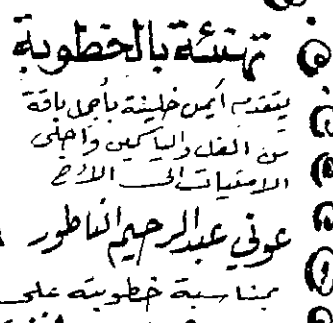 تهنئة بالخطوبة
يتقدم أيمن خليفة بأجمل باقة
من الفل والياسمين وأحلى
الامنيات الى الأخ
عوني عبدالرحيم الناطور
بمناسبة خطوبته على